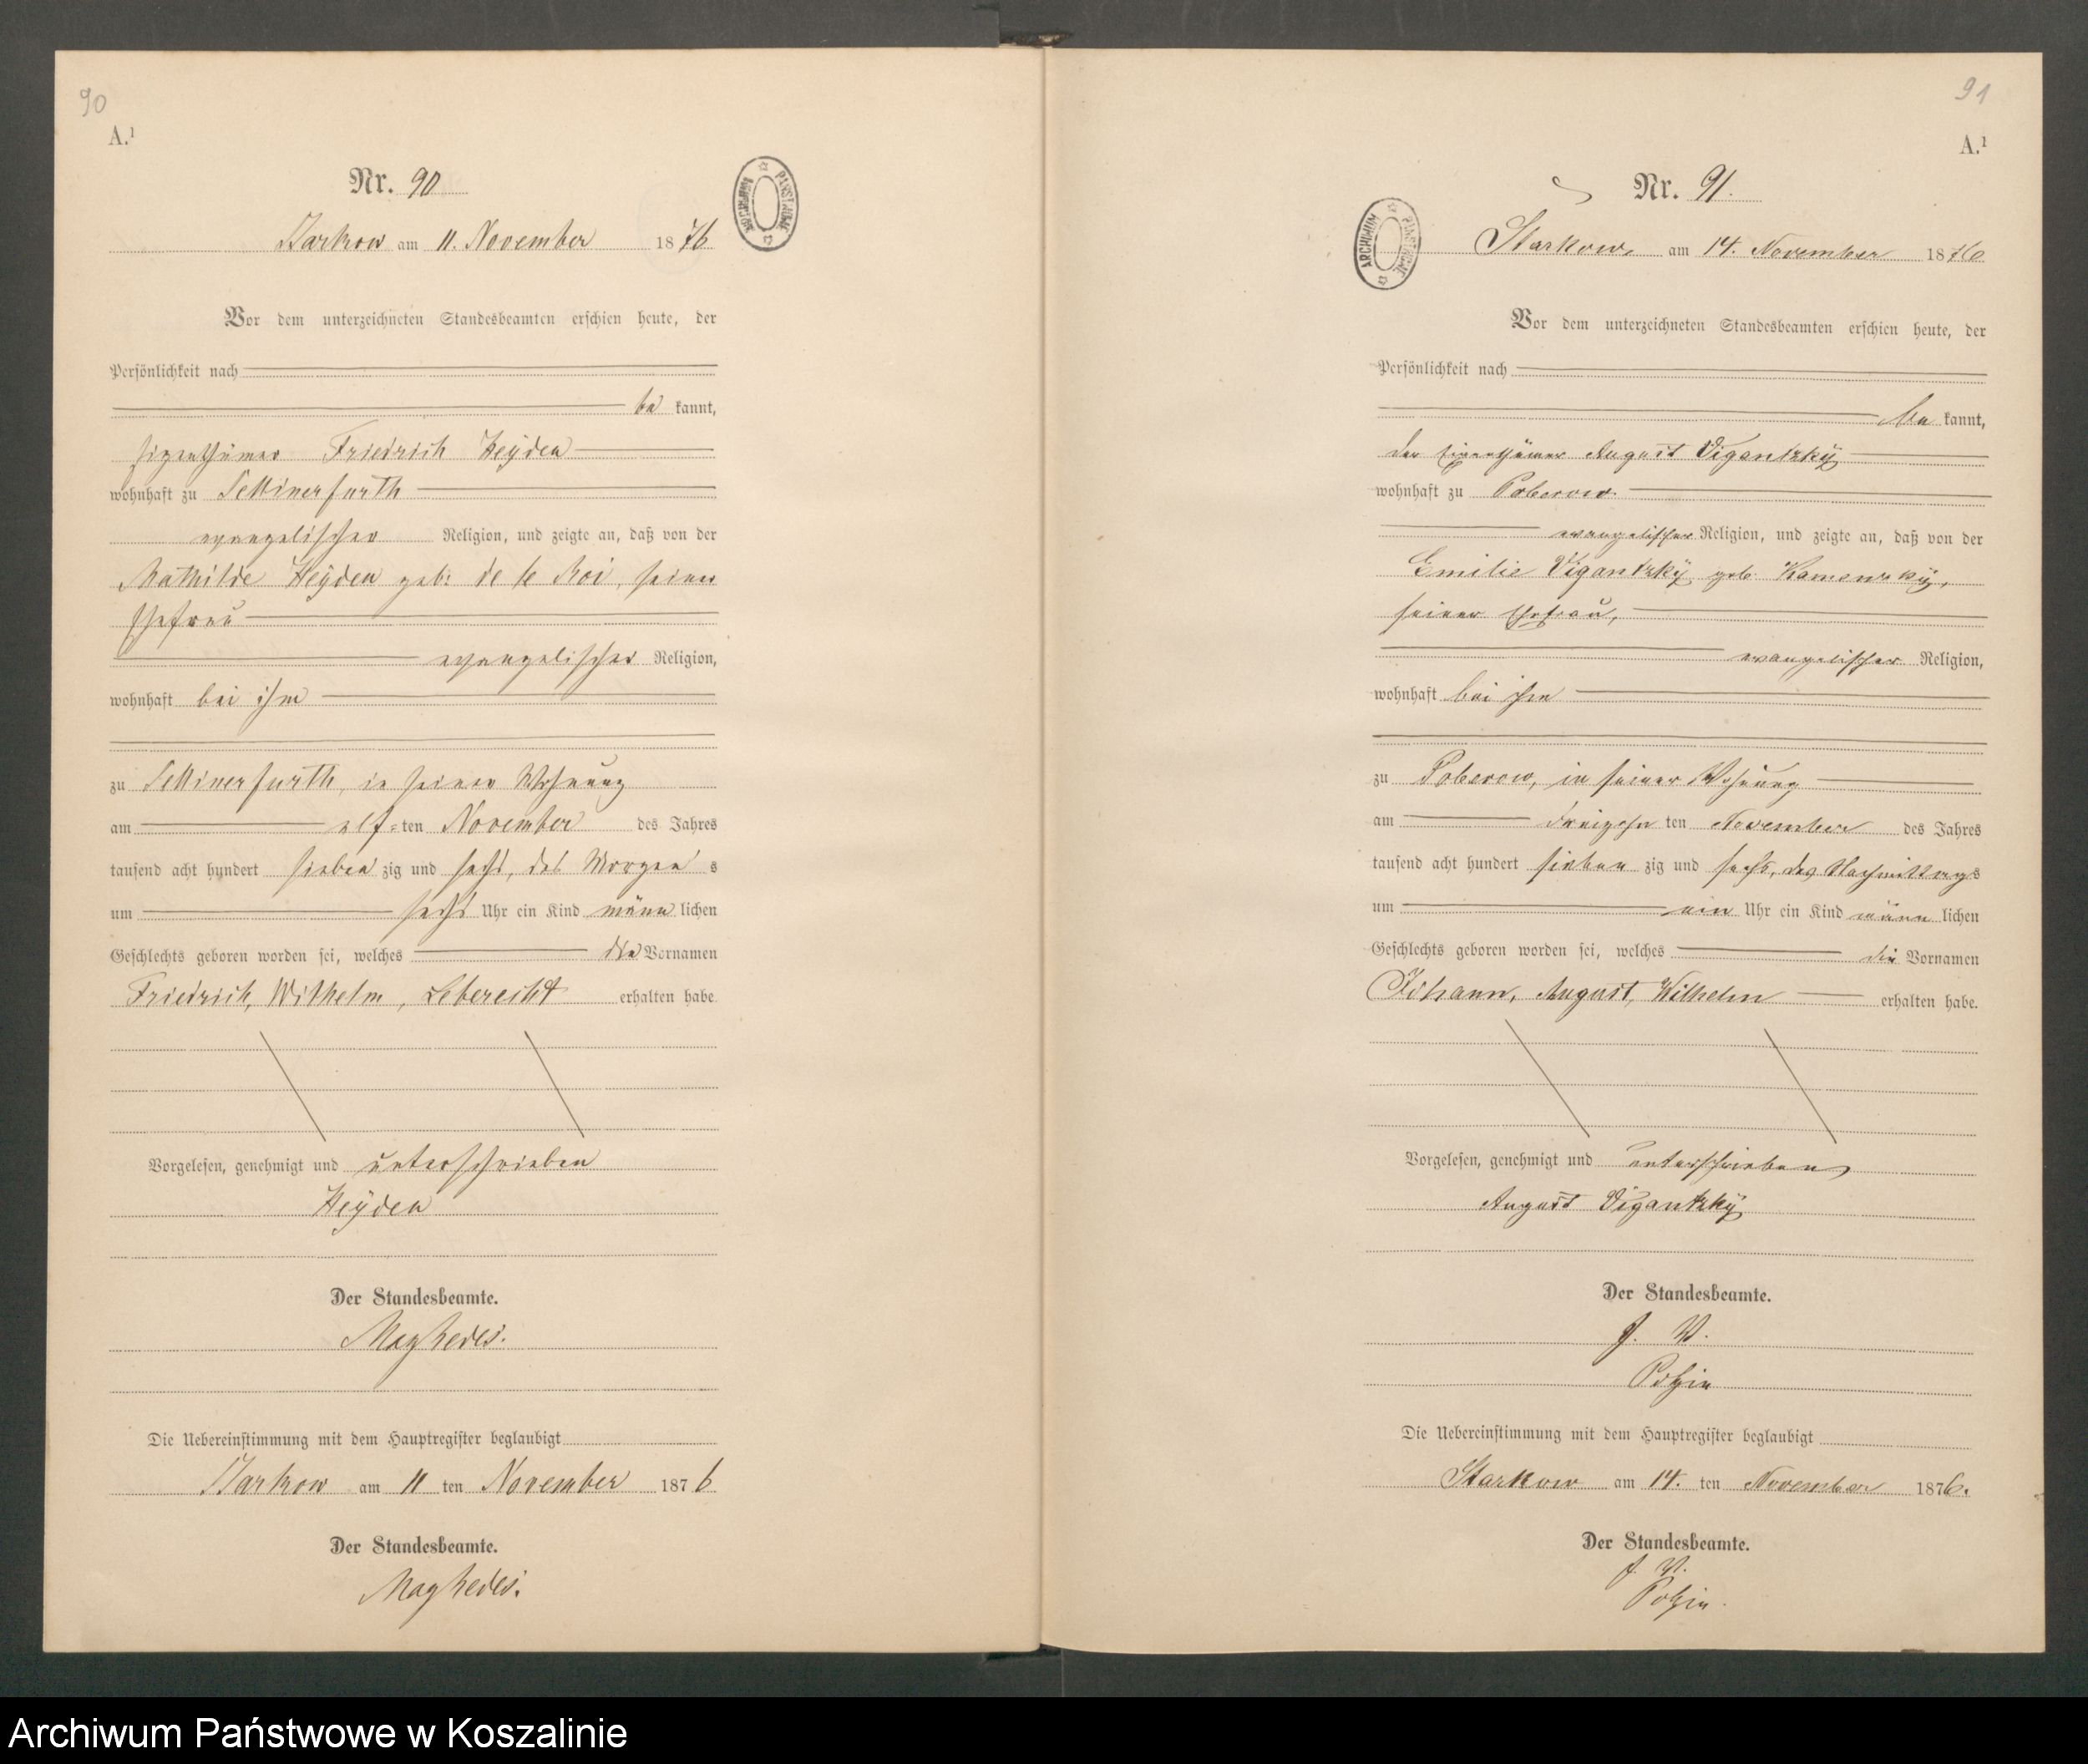 90
A.¹
Nr. 90
ARCHIWUM PAŃSTWOWE
Starkow am 11. November 1876
Vor dem unterzeichneten Standesbeamten erschien heute, der
Persönlichkeit nach
be kannt,
Eigenthümer Friedrich Heÿden
wohnhaft zu
evangelischer Religion, und zeigte an, daß von der
Mathilde Heÿden geb: de le Roi, seiner
Ehefrau
evangelischer Religion,
wohnhaft bei ihm
zu in seiner Wohnung
am elf=ten November des Jahres
tausend acht hundert sieben zig und sechs, des Morgen s
um sechs Uhr ein Kind männ lichen
Geschlechts geboren worden sei, welches die Vornamen
Friedrich, Wilhelm, Leberecht erhalten habe
Vorgelesen, genehmigt und unterschrieben
Heÿden
Der Standesbeamte.
Die Uebereinstimmung mit dem Hauptregister beglaubigt
Starkow am 11 ten November 1876
Der Standesbeamte.
91
A.¹
Nr. 91.
ARCHIWUM PAŃSTWOWE
Starkow, am 14. November 1876
Vor dem unterzeichneten Standesbeamten erschien heute, der
Persönlichkeit nach
be kannt,
der Eigenthümer August Vigantzkÿ
wohnhaft zu Poberow.
evangelischer Religion, und zeigte an, daß von der
Emilie Vigantzkÿ geb. Kamenzkÿ,
seiner Ehefrau,
evangelischer Religion,
wohnhaft bei ihm
zu Poberow, in seiner Wohnung
am dreizehn ten November des Jahres
tausend acht hundert sieben zig und sechs, des Nachmittags
um ein Uhr ein Kind männ lichen
Geschlechts geboren worden sei, welches die Vornamen
Johann, August, Wilhelm erhalten habe.
Vorgelesen, genehmigt und unterschrieben
August Vigantzkÿ
Der Standesbeamte.
J. V.
Polzin
Die Uebereinstimmung mit dem Hauptregister beglaubigt
Starkow am 14. ten November 1876.
Der Standesbeamte.
J. V.
Polzin.
Archiwum Państwowe w Koszalinie